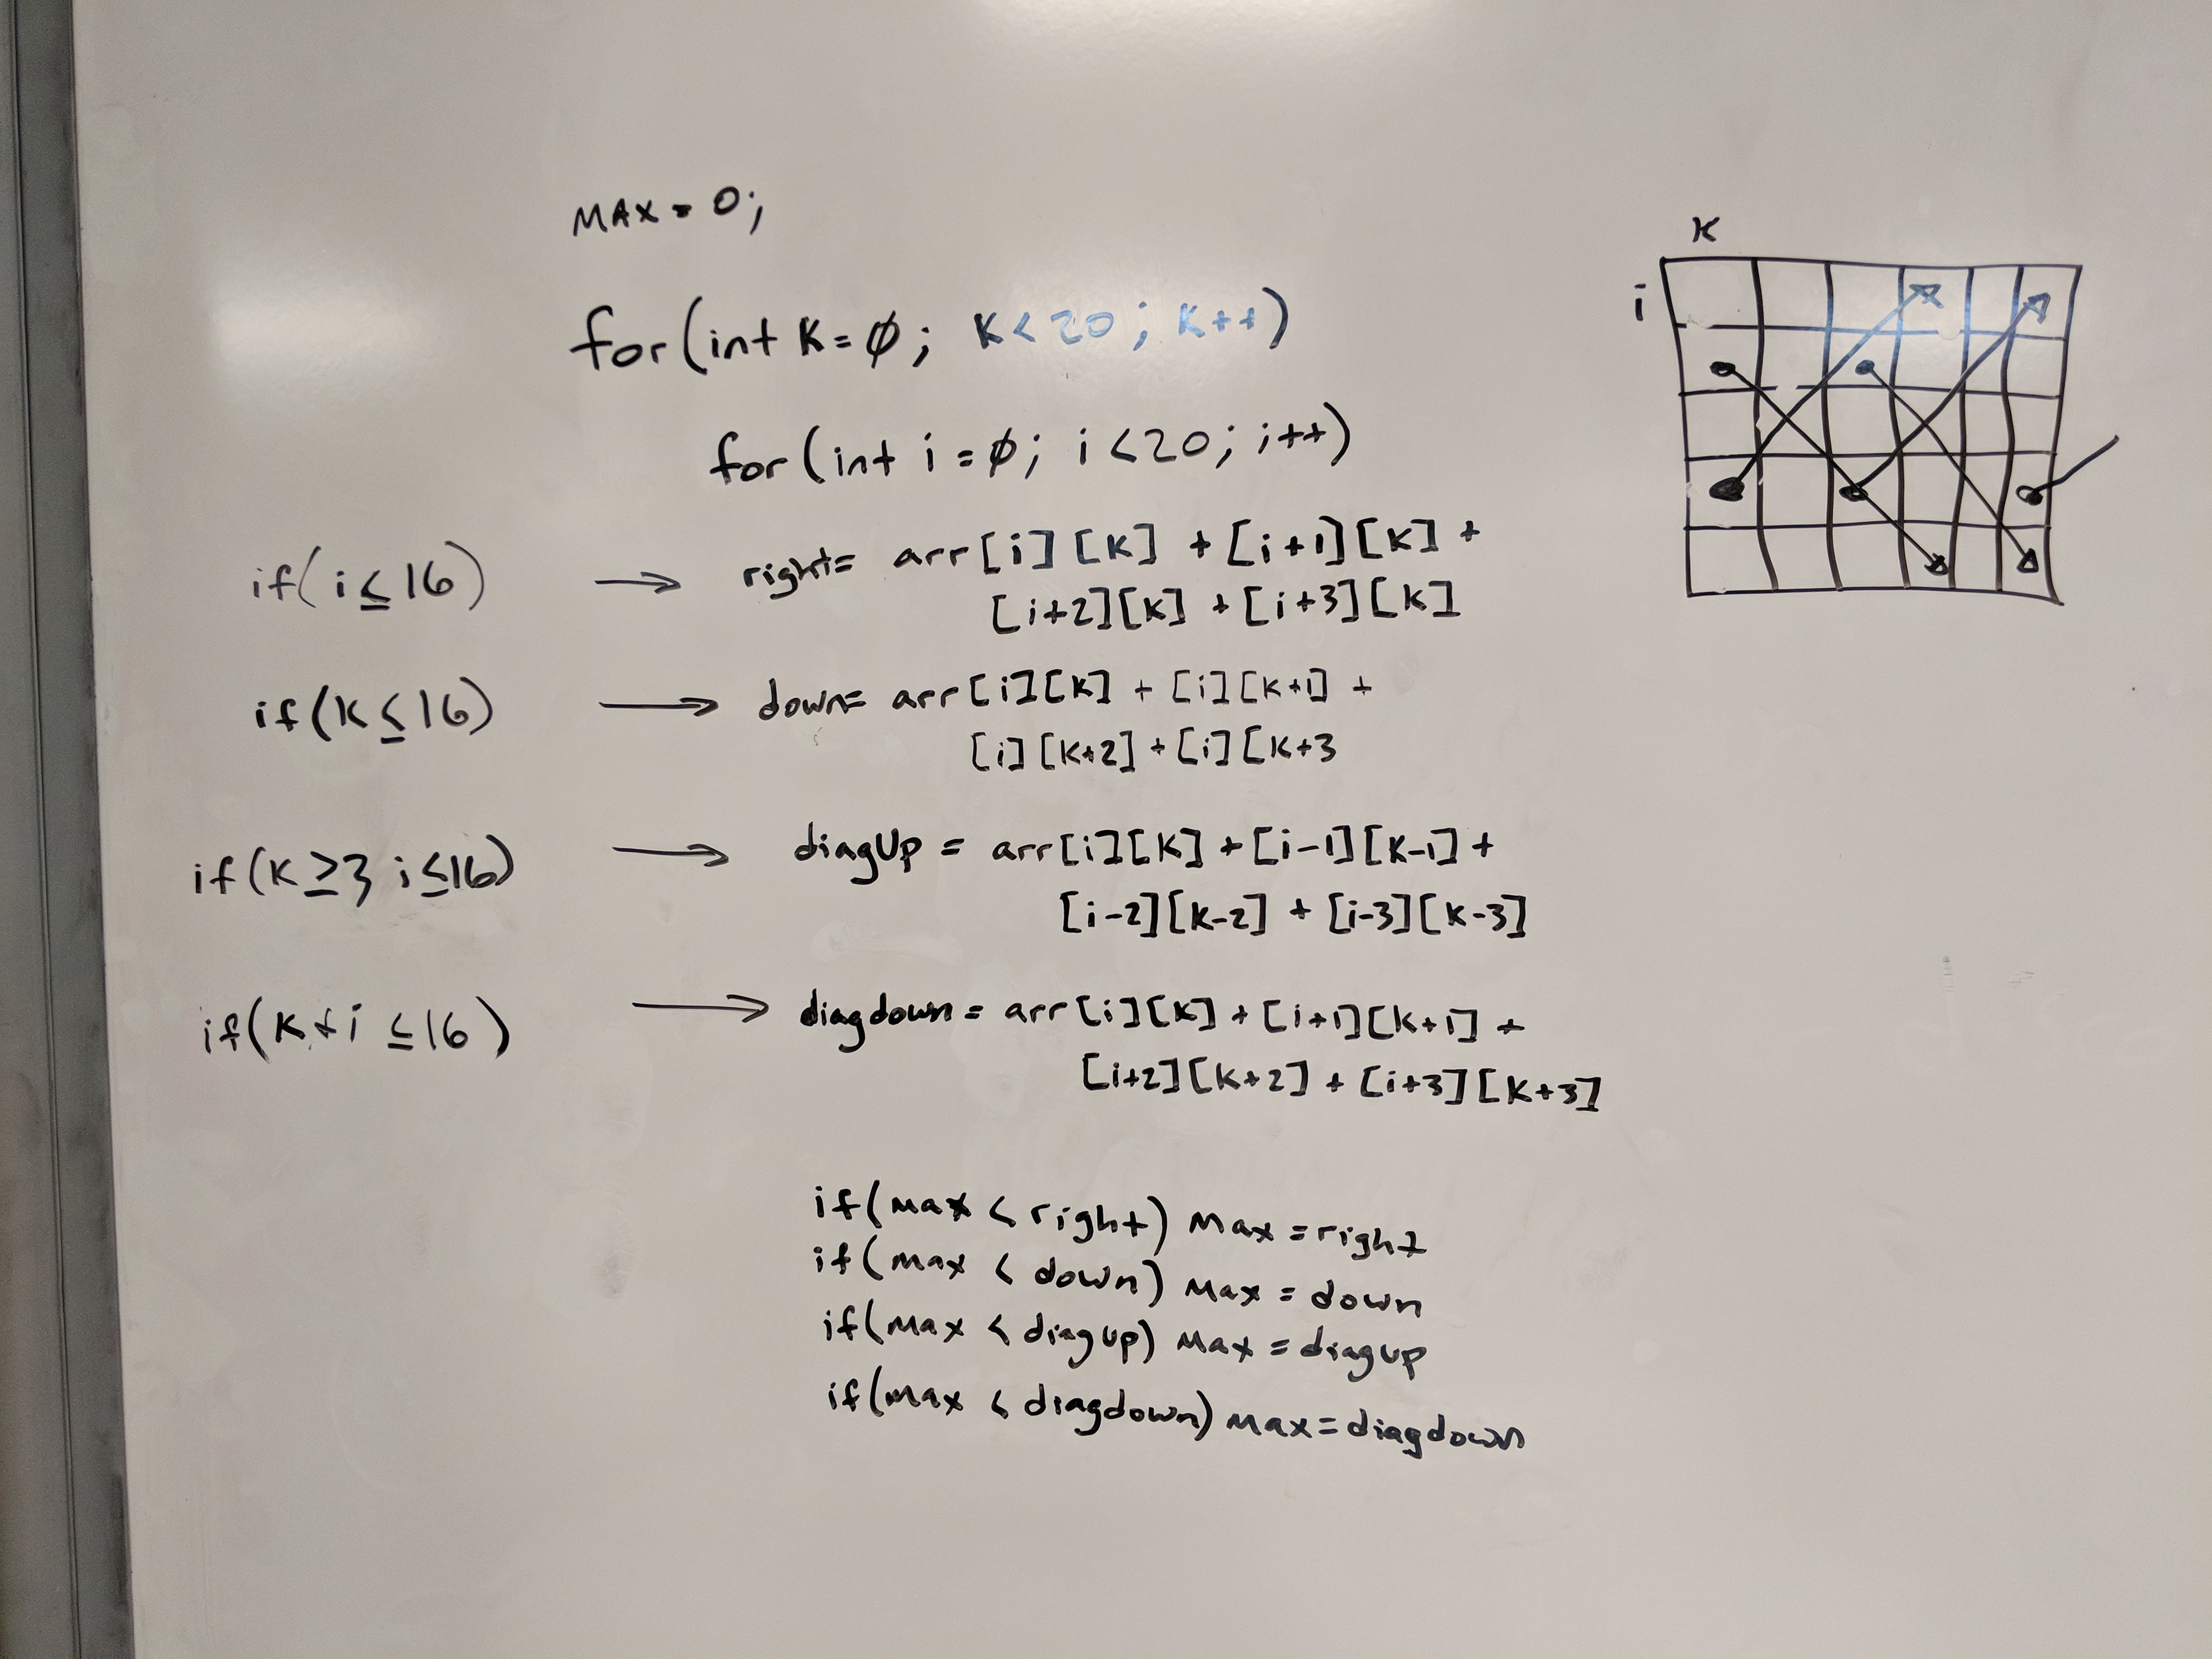 MAX = 0;
for(int K=∅; K<20; K++)
for(int i=∅; i<20; i++)
if(i≤16) → right= arr[i][K] + [i+1][K] +
[i+2][K] + [i+3][K]
if(K≤16) → down= arr[i][K] + [i][K+1] +
[i][K+2] + [i][K+3
if(K≥3 i≤16) → diagUp = arr[i][K] + [i-1][K-1] +
[i-2][K-2] + [i-3][K-3]
if(K+i ≤16) → diagdown= arr[i][K] + [i+1][K+1] +
[i+2][K+2] + [i+3][K+3]
if(max < right) Max = right
if(max < down) Max = down
if(max < diagup) Max = diagup
if(max < diagdown) Max = diagdown
K
i